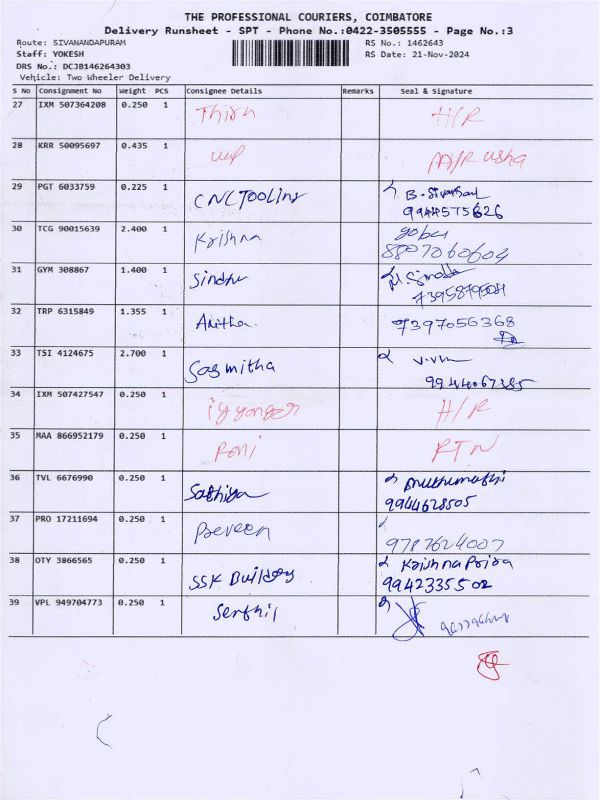 THE PROFESSIONAL COURIERS, COIMBATORE
Delivery Runsheet - SPT - Phone No.:0422-3505555 - Page No.:3
Route: SIVANANDAPURAM RS No.: 1462643
Staff: YOKESH RS Date: 21-Nov-2024
DRS No.: DCJB146264303
Vehicle: Two Wheeler Delivery
S No Consignment No Weight PCS Consignee Details Remarks Seal & Signature
27 IXM 507364208 0.250 1 H/R
28 KRR 50095697 0.435 1 usha
29 PGT 6033759 0.225 1 CNC Tooling
9944575626
30 TCG 90015639 2.400 1 Krishna
8807060604
31 GYM 308867 1.400 1 Sindhu
32 TRP 6315849 1.355 1 Anitha. 7397056368
33 TSI 4124675 2.700 1 Sasmitha
34 IXM 507427547 0.250 1 iyyanger H/R
35 MAA 866952179 0.250 1 RTN
36 TVL 6676990 0.250 1 Sathiya
9944628505
37 PRO 17211694 0.250 1 Preveen
9787624007
38 OTY 3866565 0.250 1 SSK Builders Krishna Priya
9942335502
39 VPL 949704773 0.250 1 Senthil